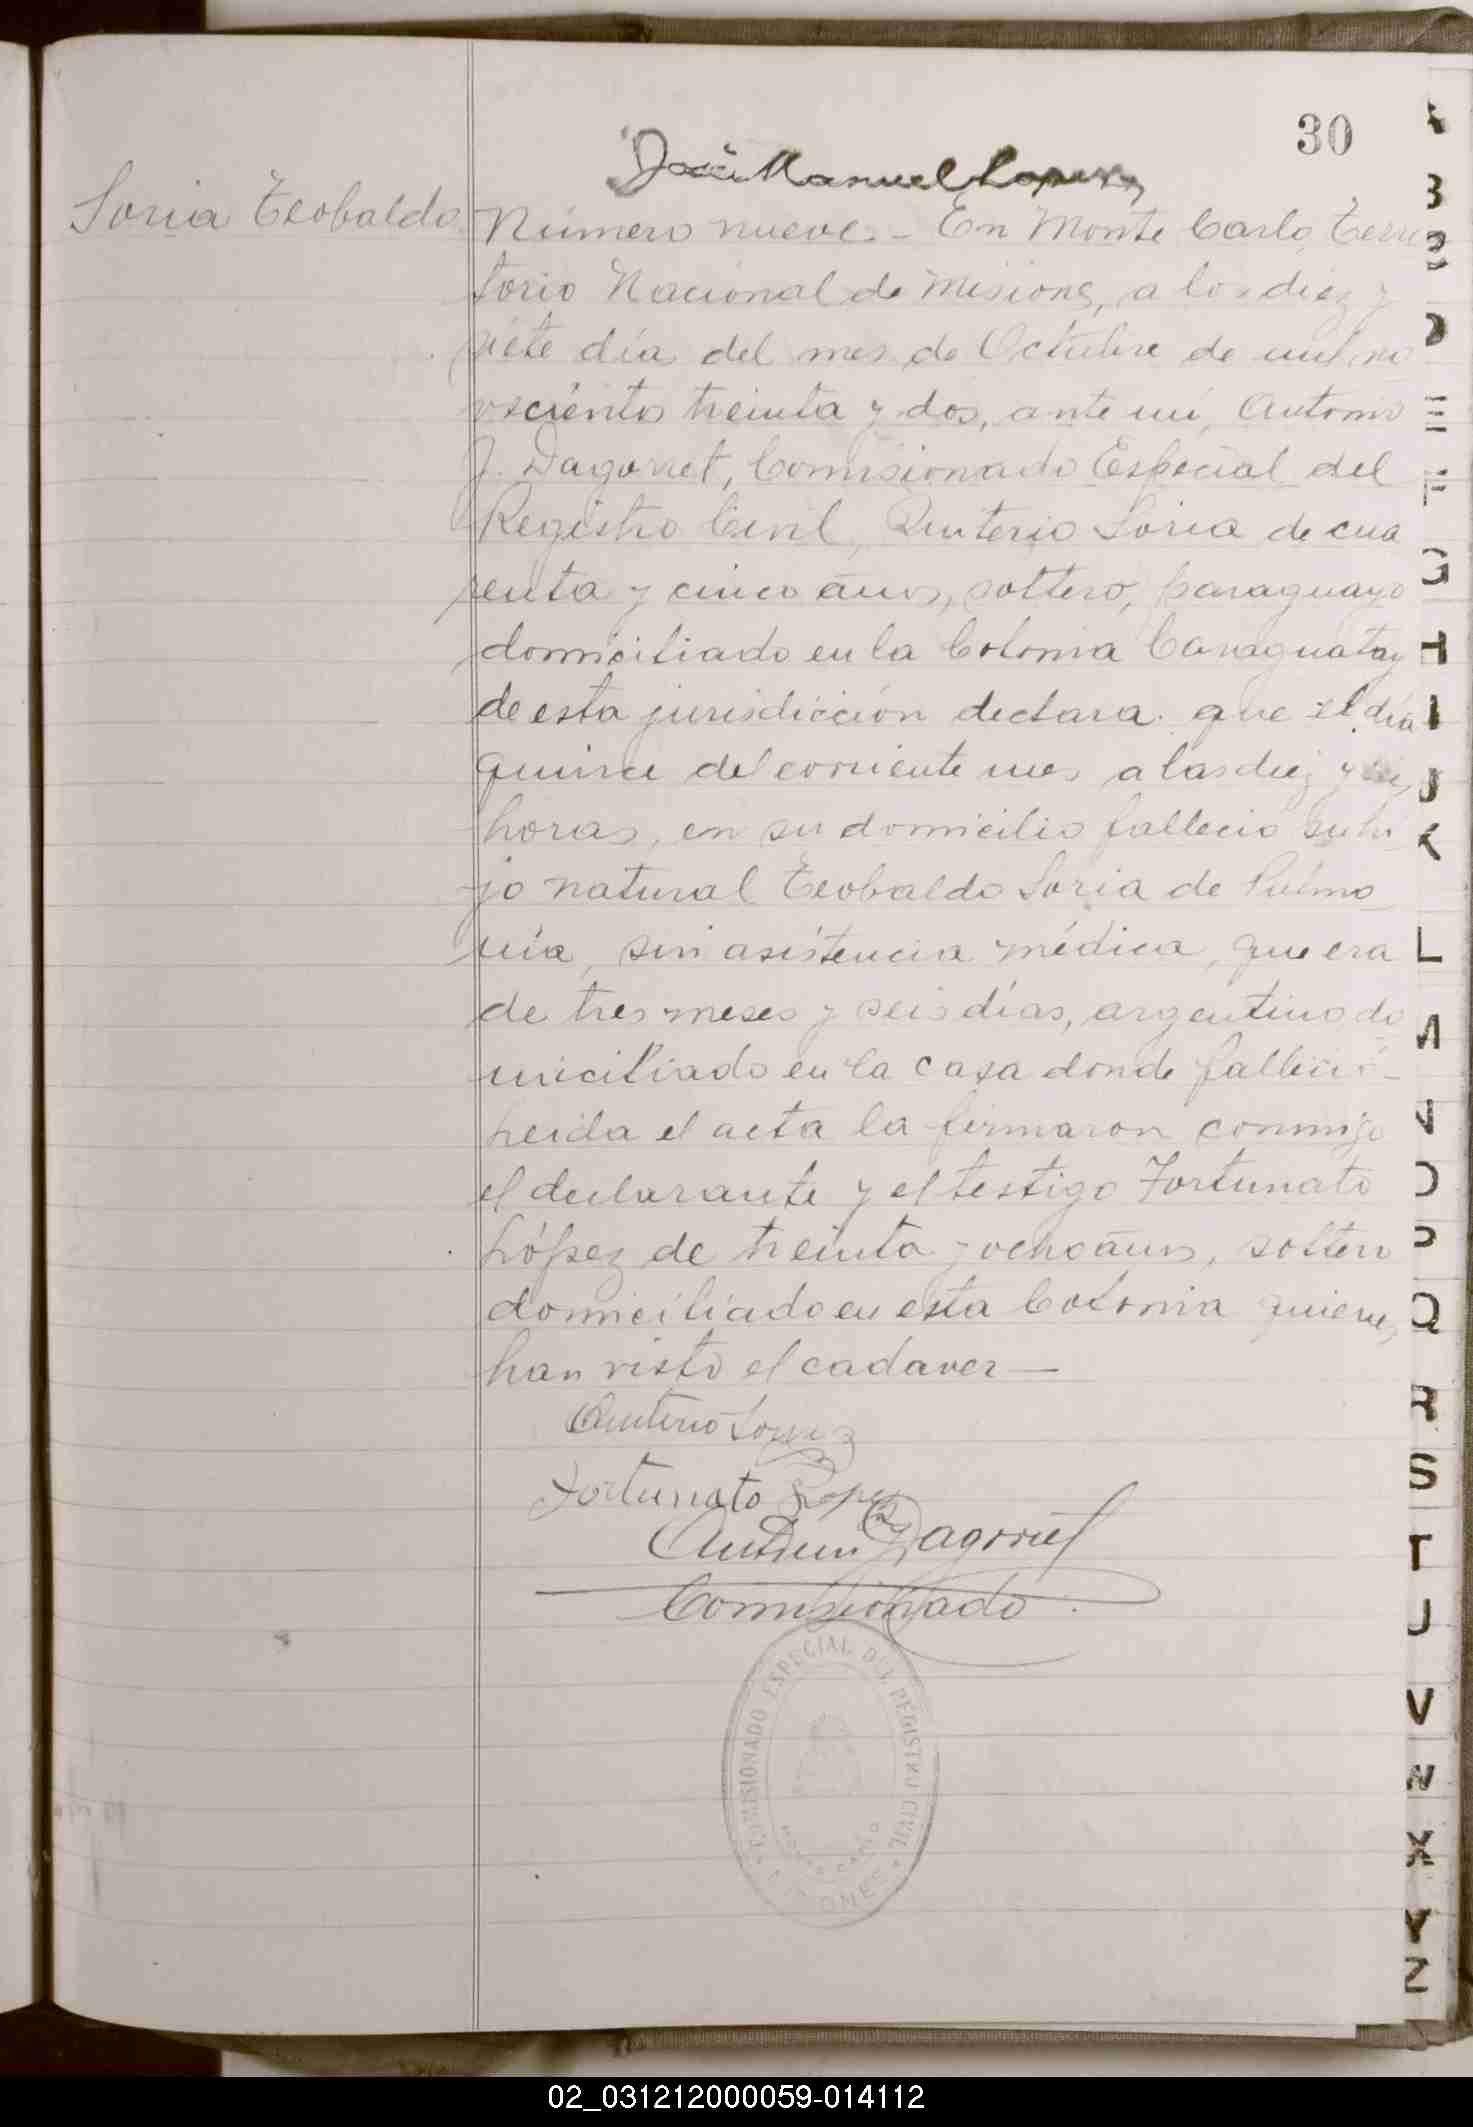 30
José Manuel Lopez
Soria Teobaldo
Número nueve.- En Monte Carlo, Terri
torio Nacional de Misiones, a los diez y
siete día del mes de Octubre de mil no
vecientos treinta y dos, ante mí, Antonio
J. Dagorret, Comisionado Especial del
Registro Civil, Quiterio Soria de cua
renta y cinco años, soltero, paraguayo
domiciliado en la Colonia Caraguatay
de esta jurisdicción declara: que el día
quince del corriente mes a las diez y
horas, en su domicilio fallecio su hi
jo natural Teobaldo Soria de Pulmo
nía, sin asistencia médica, que era
de tres meses y seis días, argentino do
miciliado en la casa donde falleció-
Leida el acta la firmaron conmigo
el declarante y el testigo Fortunato
López de treinta y ocho años, soltero
domiciliado en esta Colonia quienes
han visto el cadaver —
Quiterio Soria
Fortunato Lopez
Dagorret
Comisionado
COMISIONADO ESPECIAL DEL REGISTRO CIVIL
MONTE CARLO
MISIONES
B
D
E
F
G
H
I
J
K
L
M
N
O
P
Q
R
S
T
U
V
W
X
Y
Z
02_031212000059-014112